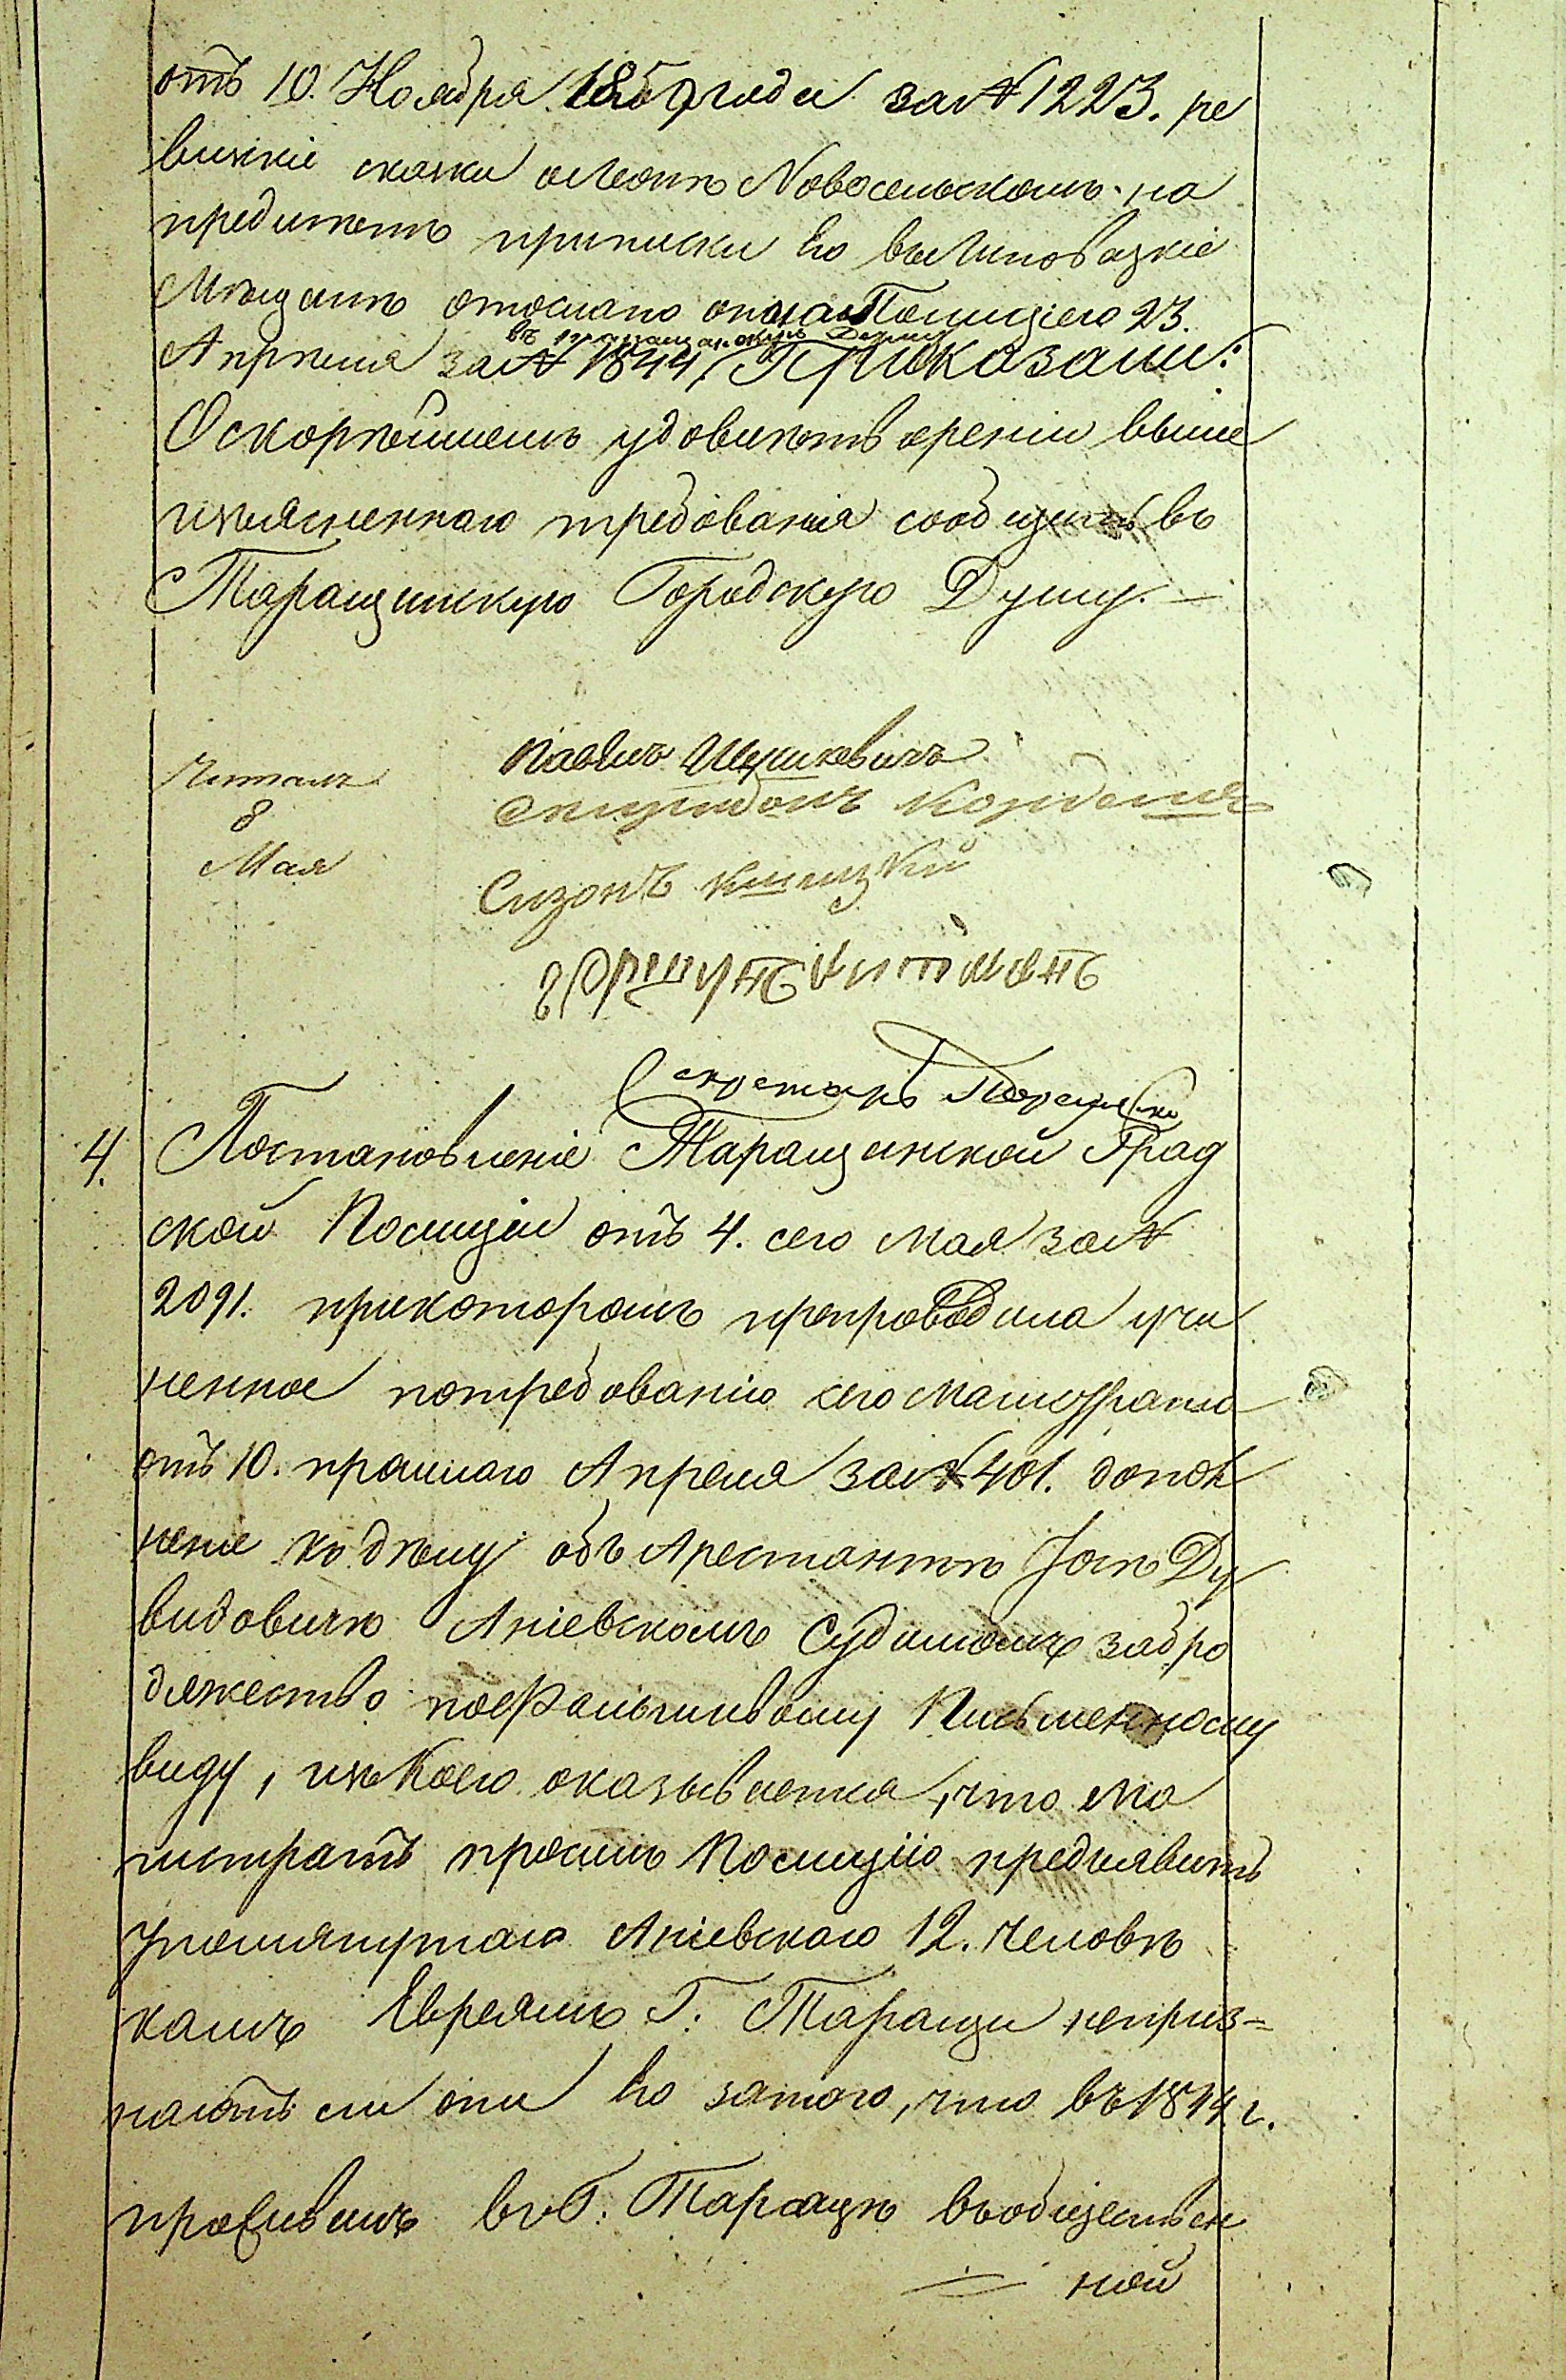 отъ 10. Ноября 1859 года за № 1223. ре
визкіе скаски о Новосельскомъ на
предметъ приписки во
Мѣщанъ отослано Полиціею 23.
въ Таращанскую Думу
Апрѣля за № 1844, Приказали:
О скорѣйшемъ удовлетвореніи выше
изъясненнаго требованія сообщить въ
Таращанскую Городскую Думу. —
Читалъ
8
Мая
Павелъ
Сизонъ
Секретарь
4. Постановленіе Таращанской Град
ской Полиціи отъ 4. сего Мая за №
2091. при которомъ препроводила учи
ненное потребованію сего Магистрата
отъ 10. прошлаго Апреля за № 401. допол
неніе къ дѣлу объ Арестантѣ Іось Ду
видовичѣ Аніевскомъ судимомъ забро
дяжество пофальшивому Письменному
виду, изъ коего оказывается, что Ма
гистратъ просилъ Полицію предъявить
упомянутаго Аніевскаго 12. человѣ
камъ Евреямъ Г. Таращи неприз=
наютъ ли они во затого, что въ 1844 г.
въ Г. Таращѣ въобществен
ной